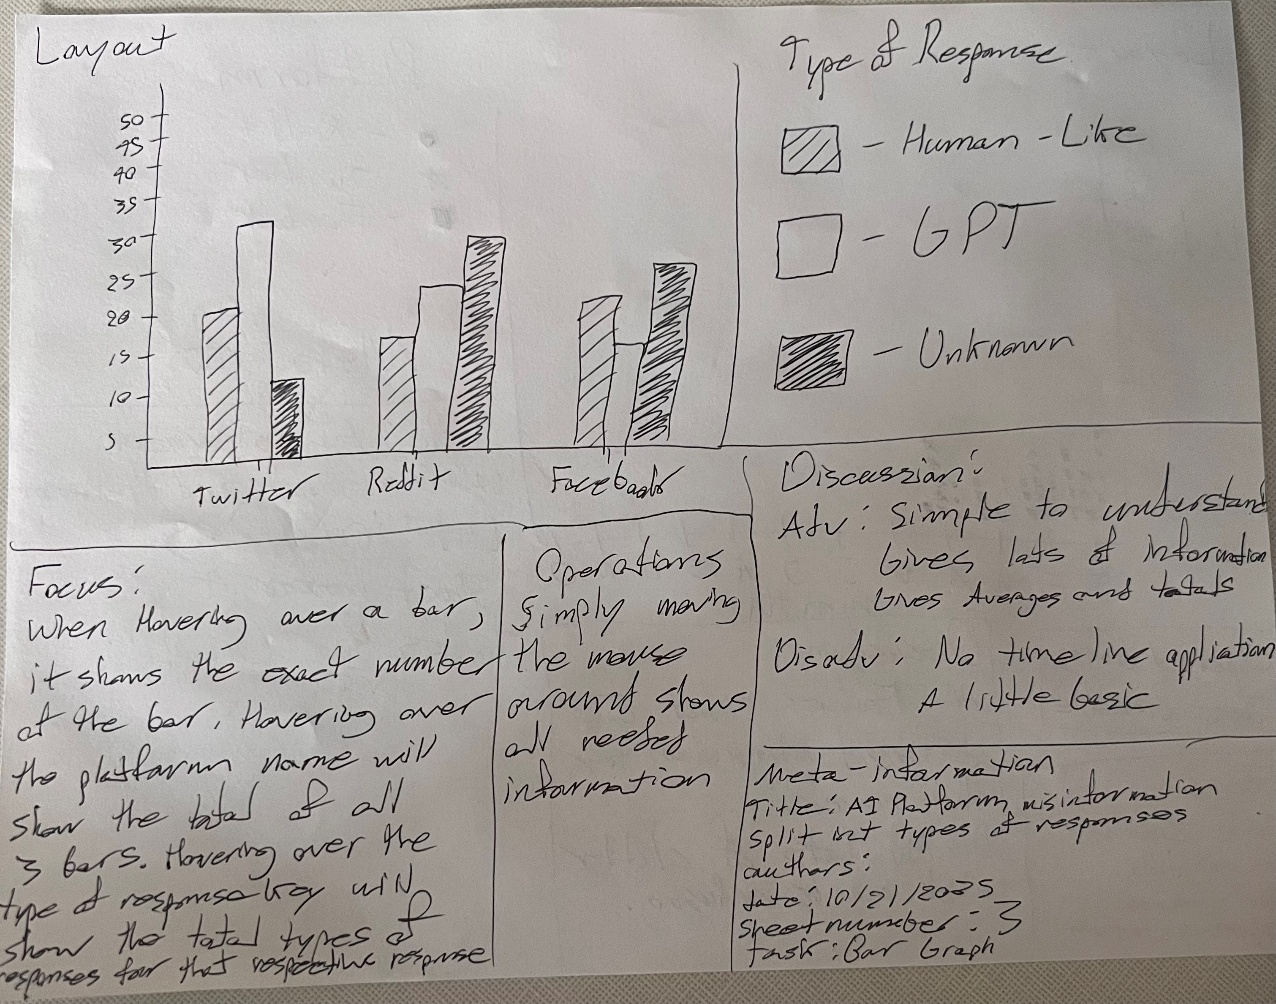 Layout
50
45
40
35
30
25
20
15
10
5
Twitter Reddit Facebook
Type of Response
- Human-Like
- GPT
- Unknown
Focus:
When Hovering over a bar,
it shows the exact number
of the bar. Hovering over
the platform name will
show the total of all
3 bars. Hovering over the
type of response key will
show the total types of
responses for that respective response
Operations
Simply moving
the mouse
around shows
all needed
information
Discussion:
Adv: Simple to understand
Gives lots of information
Gives Averages and totals
Disadv: No timeline application
A little basic
Meta-information
Title: AI Platform misinformation
split int types of responses
authors:
date: 10/21/2025
Sheet number: 3
Task: Bar Graph